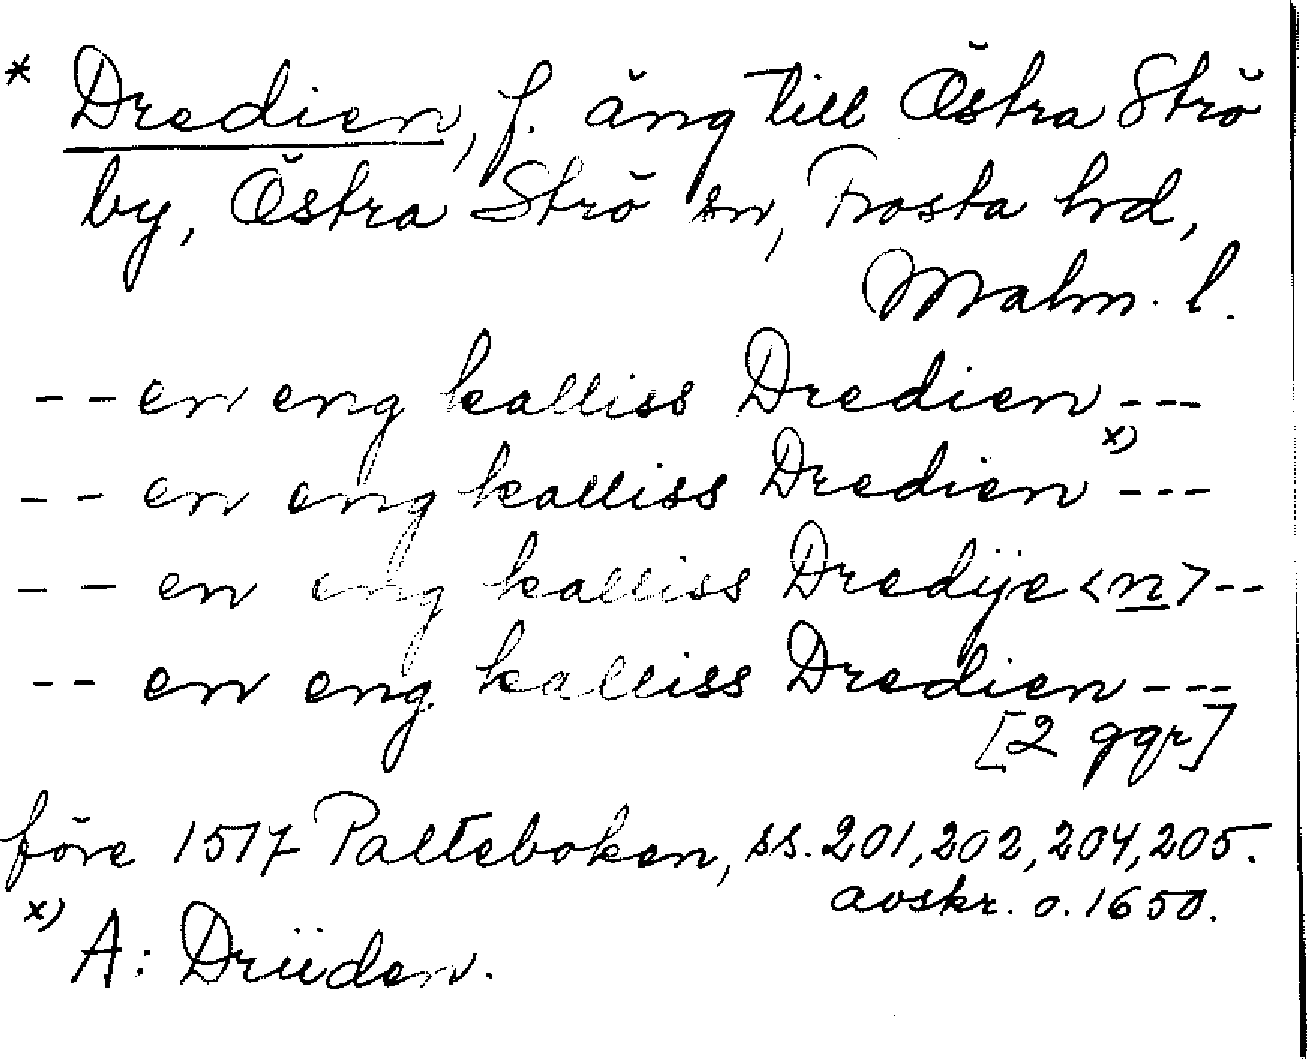 * Dredien, f. äng till Östra Strö
by, Östra Strö sn, Frosta hd,
Malm. l.
-- en eng kalliss Dredien ---
-- en eng kalliss Dredien x) ---
-- en eng kalliss Dredije <n> --
-- en eng kalliss Dredien ---
[2 ggr]
före 1517 Palteboken, ss. 201, 202, 204, 205.
avskr. o. 1650.
x) A: Driiden.